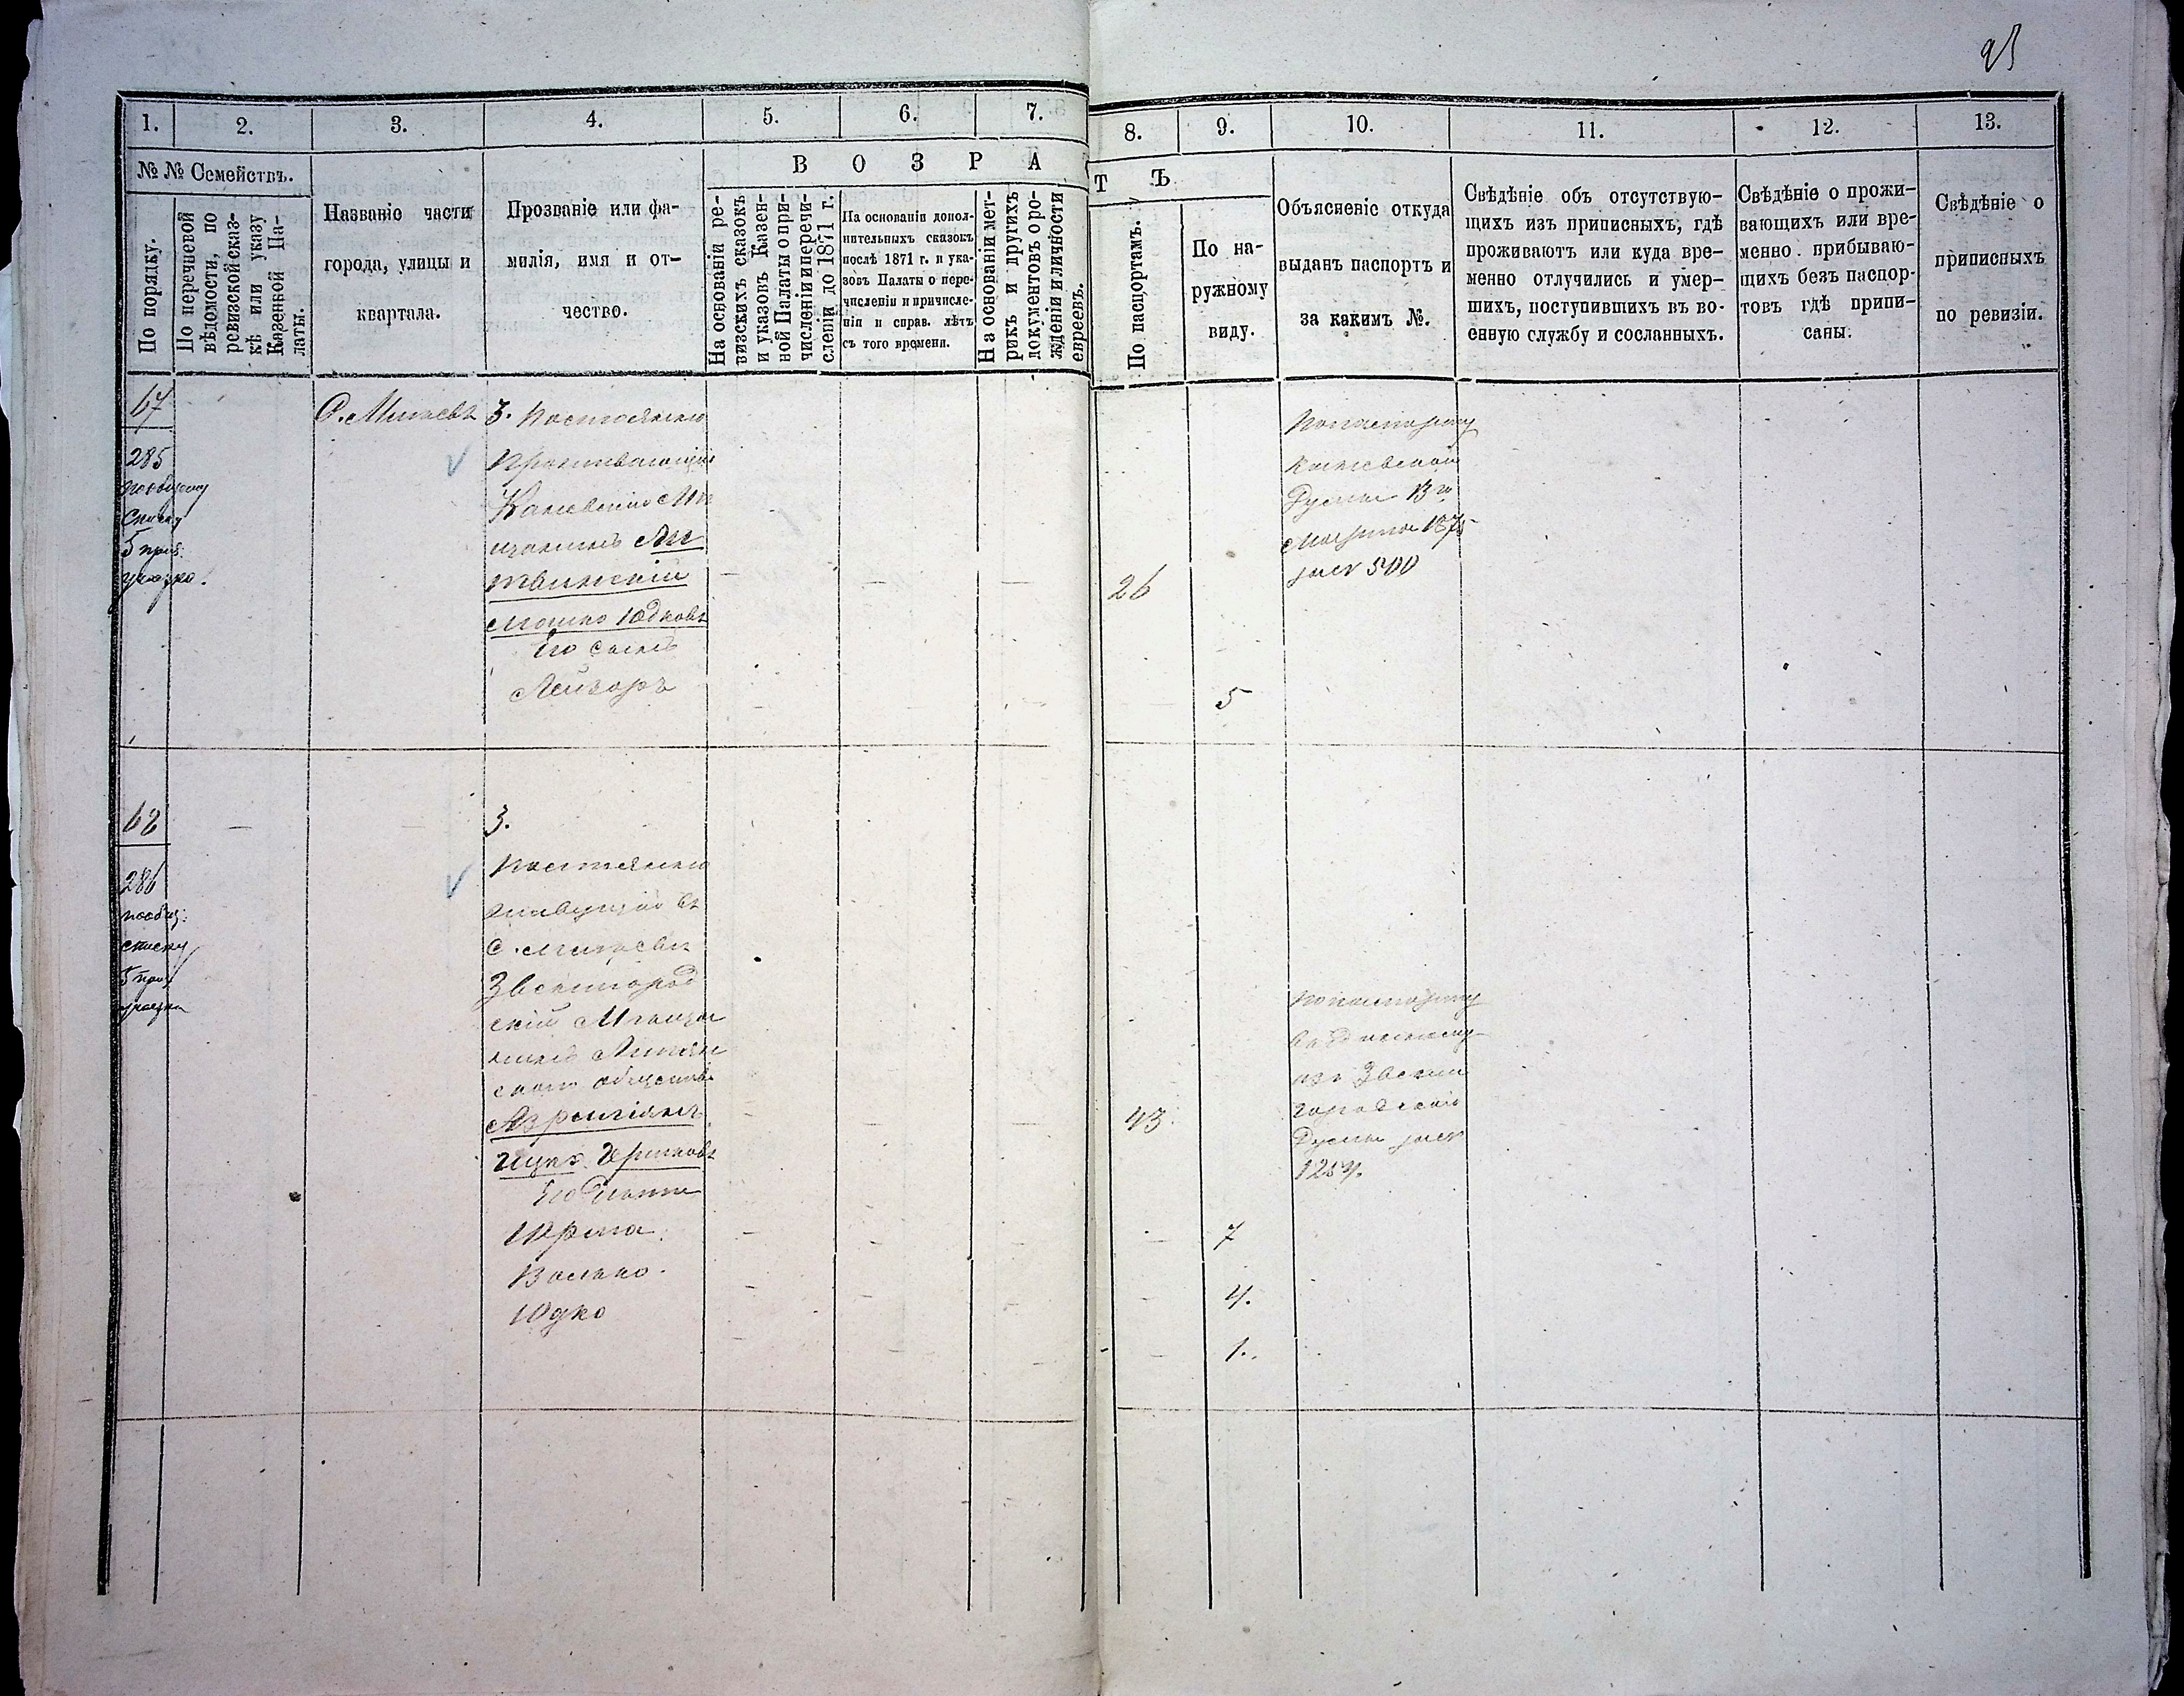 1.
2.
3.
4.
5.
6.
7.
8.
9.
10.
11.
12.
13.
№ № Семействъ.
По порядку.
По перечневой
вѣдомости, по
ревизской сказ-
кѣ или указу
Казенной Па-
латы.
Названіе части
города, улицы и
квартала.
Прозваніе или фа-
милія, имя и от-
чество.
ВОЗРА
ТЪ
На основаніи ре-
визскихъ сказокъ
и указовъ Казен-
ной Палаты о при-
численіи и перечи-
сленіи до 1871 г.
На основаніи допол-
нительныхъ сказокъ
послѣ 1871 г. и ука-
зовъ Палаты о пере-
численіи и причисле-
ніи и справ. лѣтъ
съ того времени.
На основаніи мет-
рикъ и другихъ
документовъ о ро-
жденіи и личности
евреевъ.
По паспортамъ.
По на-
ружному
виду.
Объясненіе откуда
выданъ паспортъ и
за какимъ №.
Свѣдѣніе объ отсутствую-
щихъ изъ приписныхъ, гдѣ
проживаютъ или куда вре-
менно отлучились и умер-
шихъ, поступившихъ въ во-
енную службу и сосланныхъ.
Свѣдѣніе о прожи-
вающихъ или вре-
менно прибываю-
щихъ безъ паспор-
товъ гдѣ припи-
саны.
Свѣдѣніе о
приписныхъ
по ревизіи.
67
285
по общему
списку
5 приз.
участка.
3. Постоянно
проживающій
Каневскій Мѣ
щанинъ Ли
твинскій
Мошко Юдковъ
Его сынъ
Лейзоръ
26
5
По паспорту
Каневской
Думы 13го
Марта 1875
за № 500
68
286
по общ.
списку
5 приз.
участка
3.
Постоянно
живущій въ
Звенигород
скій Мѣща
нинъ
скаго общества
Ицко
Его дѣти
Волько.
Юдко
43.
7
4.
1.
По паспорту
изъ Звени
городской
Думы за №